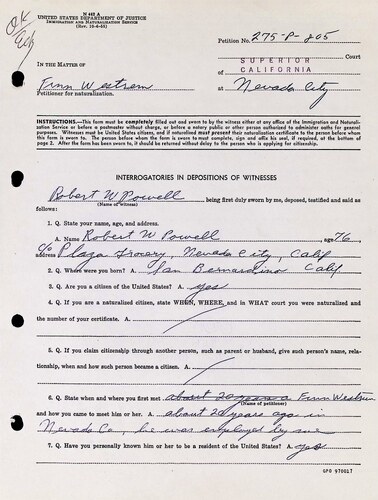 OK
N 462 A
UNITED STATES DEPARTMENT OF JUSTICE
IMMIGRATION AND NATURALIZATION SERVICE
(Rev. 10-4-50)
Petition No. 275-P-805
SUPERIOR Court
CALIFORNIA
IN THE MATTER OF
Finn Westrem at Nevada City
Petitioner for naturalization.
INSTRUCTIONS.—This form must be completely filled out and sworn to by the witness either at any office of the Immigration and Naturalization Service or before a postmaster without charge, or before a notary public or other person authorized to administer oaths for general
purposes. Witnesses must be United States citizens, and if naturalized must present their naturalization certificate to the person before whom
this form is sworn to. The person before whom the form is sworn to must complete, sign and affix his seal, if required, at the bottom of
page 2. After the form has been sworn to, it should be returned without delay to the person who is applying for citizenship.
INTERROGATORIES IN DEPOSITIONS OF WITNESSES
Robert W Powell being first duly sworn by me, deposed, testified and said as
(Name of witness)
follows:
1. Q. State your name, age, and address.
A. Name Robert W Powell, age 76,
c/o Plaza Grocery, Nevada City, Calif
2. Q. Where were you born? A. San Bernardino Calif
3. Q. Are you a citizen of the United States? A. yes
4. Q. If you are a naturalized citizen, state WHEN, WHERE, and in WHAT court you were naturalized and
the number of your certificate. A.
5. Q. If you claim citizenship through another, such as parent or husband, give such person's name, relationship, when and how such person became a citizen. A.
6. Q. State when and where you first met about 20 years a Finn Westrem
(Name of petitioner)
and how you came to meet him or her. A. about 20 years ago in
Nevada Co, he was employed by me
7. Q. Have you personally known him or her to be a resident of the United States? A. yes
GPO 970017